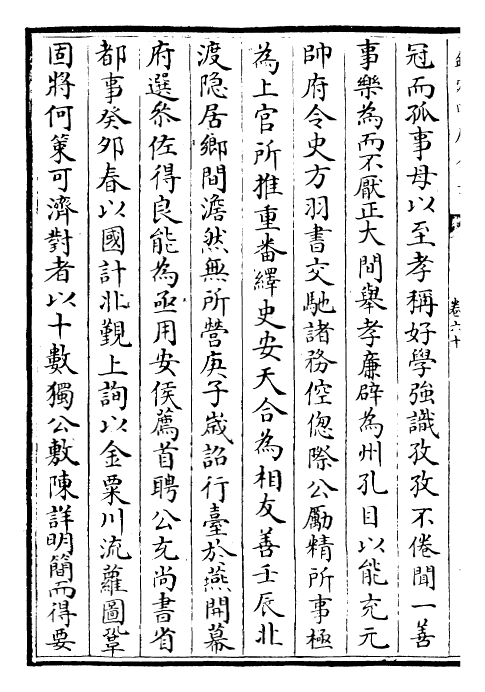 卷六十
冠而孤事母以至孝稱好學強識孜孜不倦聞一善
事樂為而不厭正大間舉孝廉辟為州孔目以能充元
帥府令史方羽書交馳諸務倥偬際公勵精所事極
為上官所推重畨繹史安天合為相友善壬辰北
渡隐居鄉間澹然無所營庚子嵗詔行臺於燕開幕
府選叅佐得良能為亟用安侯薦首聘公充尚書省
都事癸夘春以國計北覲上詢以金粟川流蘿圖鞏
固將何䇿可濟對者以十數獨公敷陳詳明簡而得要